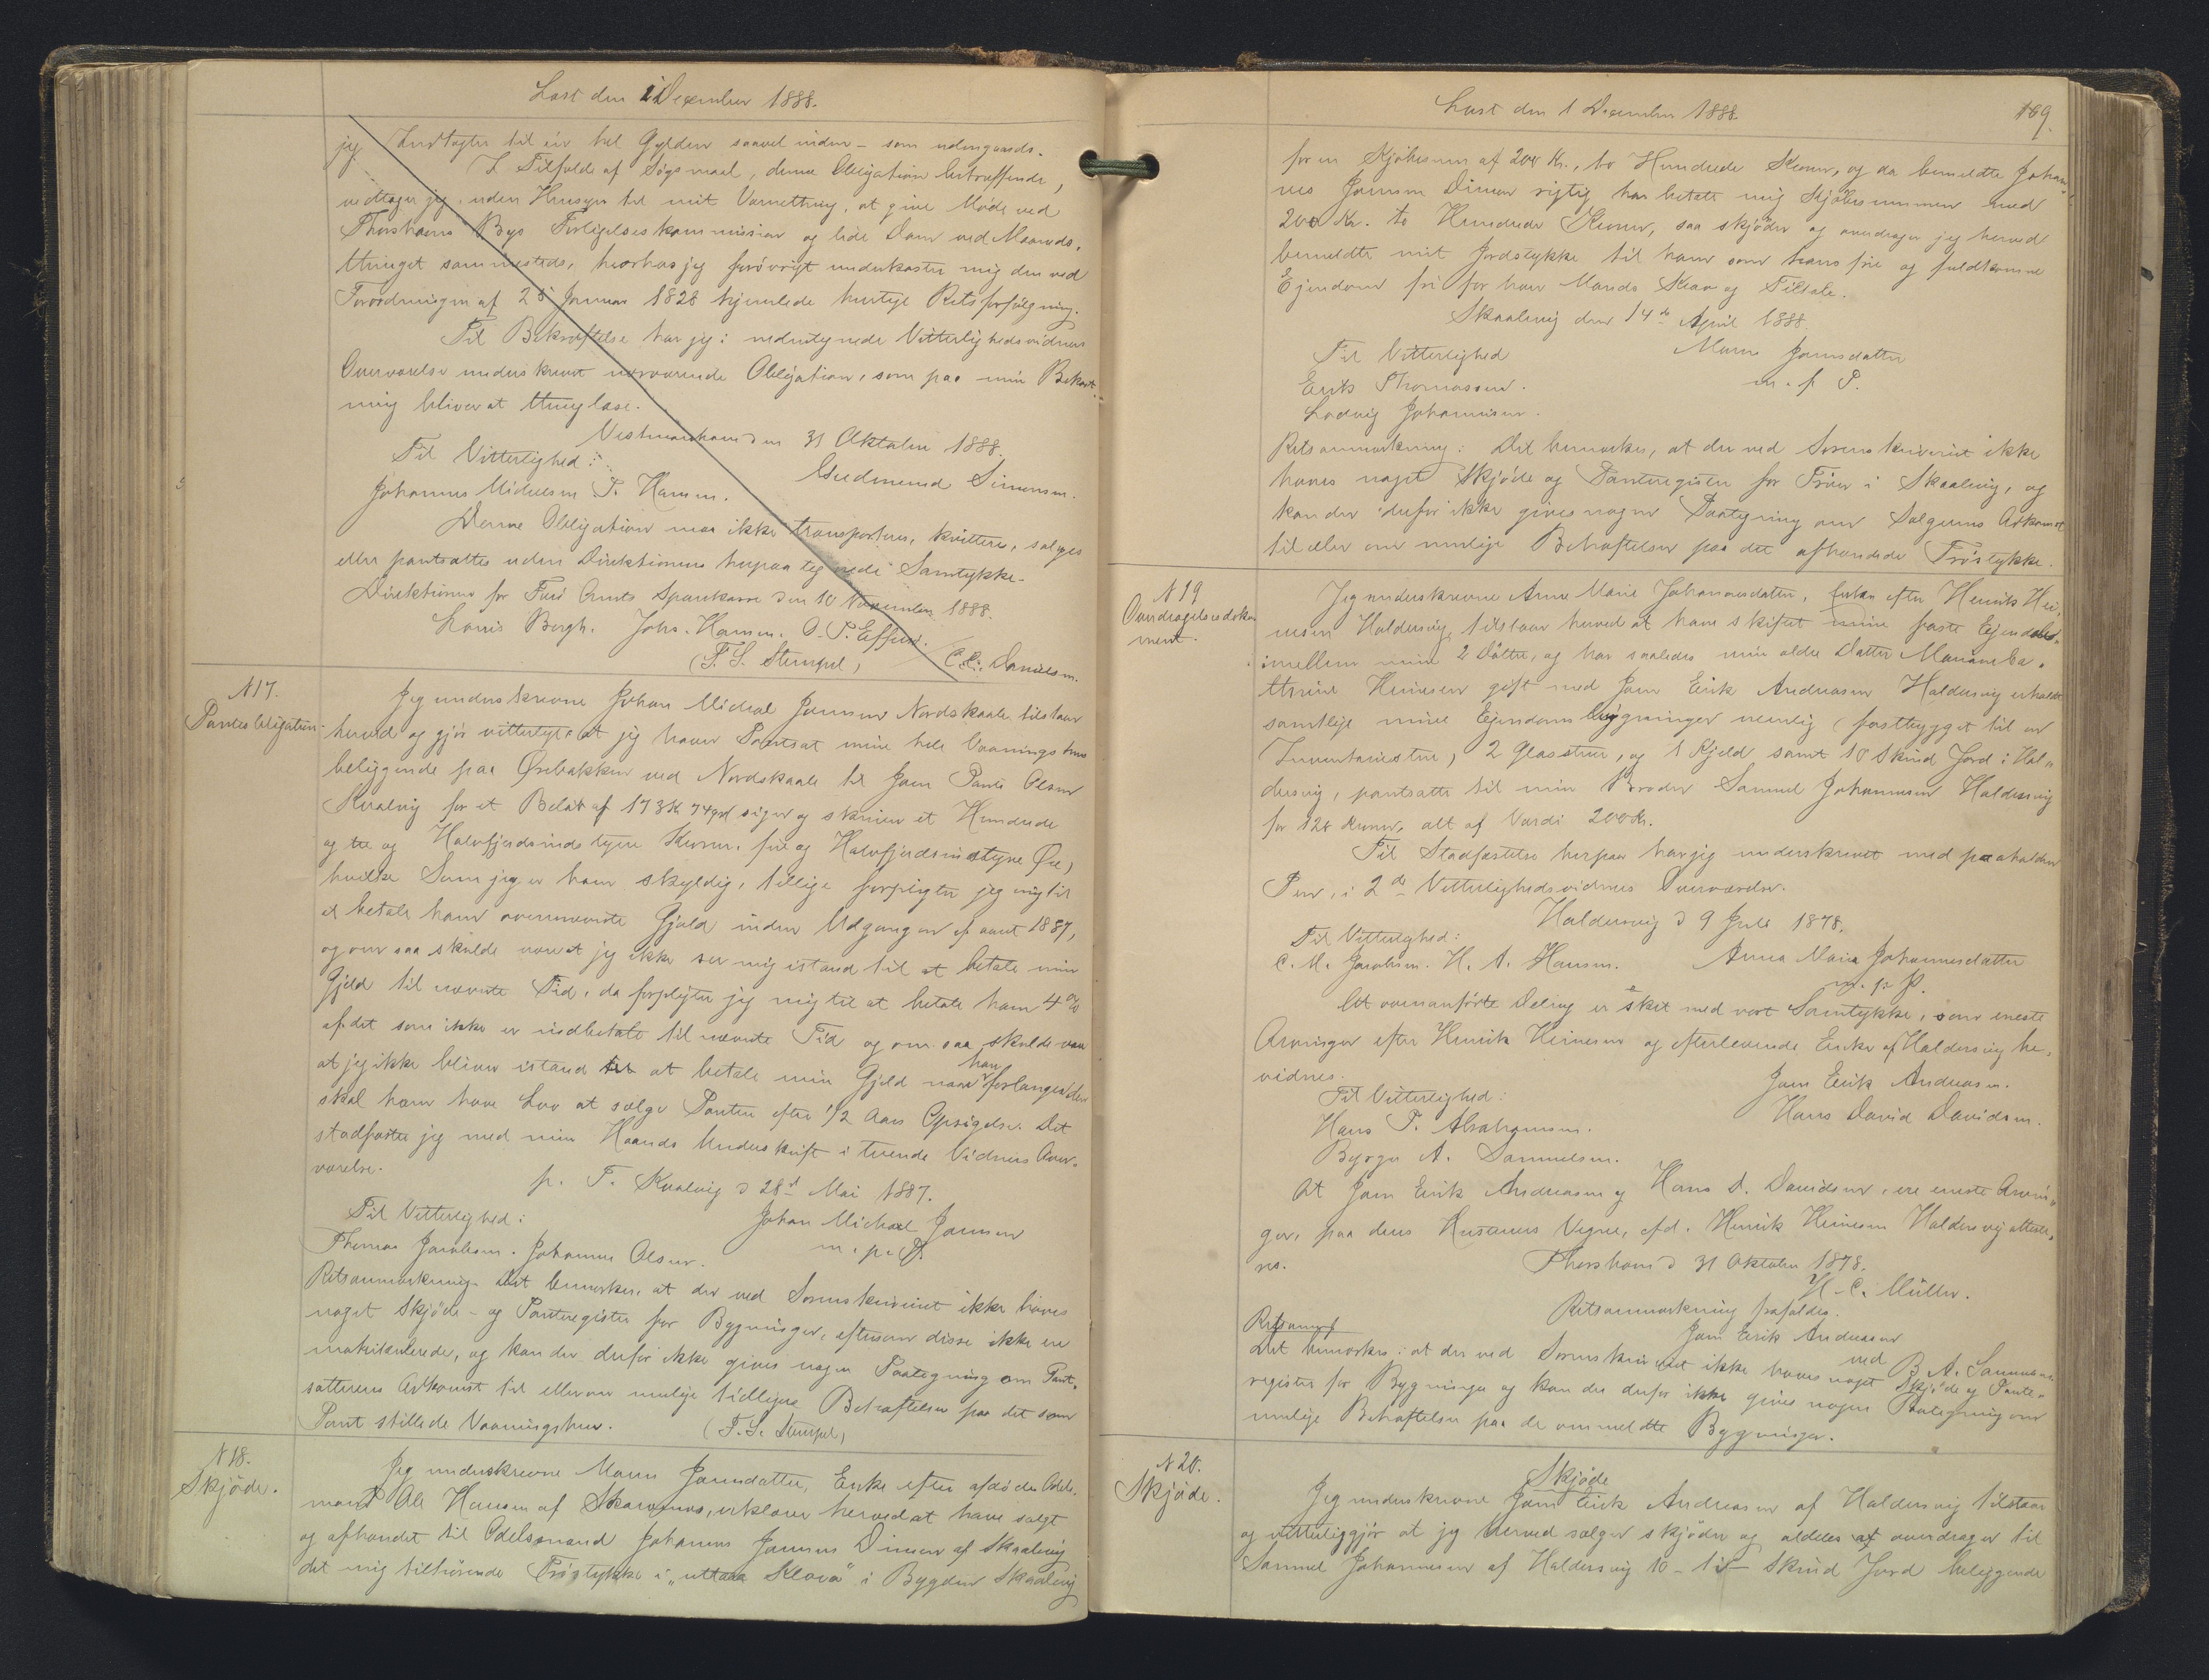 Læst den 1 December 1888.
jeg Indtægter til en hel Gylden saavel inden- som udengaards.
I Tilfælde af Søgsmaal, denne Obligation betræffende,
vedtager jeg, uden Hensyn til mit Værnething, at give Møde ved
Thorshavns Byes Forligelseskommission og lide Dom ved Maaneds-
thinget sammesteds, hvorhos jeg forøvrigt underkaster mig den ved
Forordningen af 25 Januar 1828 hjemlede hurtige Retsforfølgning.
Til Bekræftelse har jeg i undertegnede Vitterlighedsvidners
Overværelse underskrevet nærværende Obligation, som paa min Bekost-
ning bliver at thinglæse.
Vestmanhavn den 31 Oktober 1888.
Til Vitterlighed:
Gudmund Simonsen.
Johannes Michelsen P. Hansen.
Denne Obligation maa ikke transporteres, kvitteres, sælges
eller pantsættes uden Direktionens herpaa tegnede Samtykke.
Direktionen for Færø Amts Sparekasse den 10 November 1888.
Louis Bergh. Johs. Hansen. O. P. Effersø. C. C. Danielsen.
(T. S. Stempel)
N 17.
Panteobligation
Jeg underskrevne Johan Michael Joensen Nordskaale tilstaar
herved og gjør vitterligt at jeg haver Pantsat mine hele Vaaningshus
beliggende paa Ørebakken ved Nordskaale til Joen Pauli Olsen
Kvalvig for et Beløb af 173 Kr 74 Øre siger og skriver et Hundrede
og tre og Halvfjerdsindstyve Kroner, fire og Halvfjerdsindstyve Øre,
hvilke Sum jeg er ham skyldig, tillige forpligter jeg mig til
at betale ham ovennævnte Gjæld inden Udgangen af aaret 1887,
og om saa skulde være at jeg ikke ser mig istand til at betale min
Gjeld til nævnte Tid, da forpligter jeg mig til at betale ham 4 %
af det som ikke er indbetalt til nævnte Tid og om saa skulde være
at jeg ikke bliver istand til at betale min Gjeld naar han forlanger den
skal ham have Lov at sælge Panten efter 1/2 Aars Opsigelse. Det
stadfæster jeg med min Haands Underskrift i tvende Vidners Over-
værelse.
p. T. Kvalvig d 28d Mai 1887.
Til Vitterlighed:
Johan Michael Joensen
Thomas Jacobsen. Johannes Olsen.
m. p. P.
Retsanmærkning. Det bemærkes, at der ved Sorenskriveriet ikke haves
noget Skjøde- og Panteregister for Bygninger, eftersom disse ikke ere
matrikulerede, og kan der derfor ikke gives nogen Paategning om Pant-
sætterens Adkomst til eller om mulige tidligere Behæftelser paa det som
Pant stillede Vaaningshus.
(T. S. Stempel)
N 18.
Skjøde.
Jeg underskrevne Maren Joensdatter, Enke efter afdøde Odels-
mand Ole Hansen af Skarvanes, erklærer herved at have solgt
og afhændet til Odelsmand Johannes Joensen Dimon af Skaalevig
det mig tilhørende Trøstykke i "uttara Klova" i Bygden Skaalevig
Læst den 1 December 1888.
169.
for en Kjøbesum af 200 Kr., to Hundrede Kroner, og da bemeldte Johan-
nes Joensen Dimon rigtig har betalt mig Kjøbesummen med
200 Kr. to Hundrede Kroner, saa skjøder og overdrager jeg herved
bemeldte mit Jordstykke til ham som hans frie og fuldkomne
Ejendom fri for hver Mands Krav og Tiltale.
Skaalevig den 14de April 1888.
Til Vitterlighed
Maren Joensdatter
Erik Thomassen.
m. p. P.
Ludvig Johannesen.
Retsanmærkning: Det bemærkes, at der ved Sorenskriveriet ikke
haves noget Skjøde og Panteregister for Trøer i Skaalevig, og
kan der derfor ikke gives nogen Paategning om Sælgerens Adkomst
til eller om mulige Behæftelser paa det afhændede Trøstykke.
N 19
Overdragelsesdoku
ment.
Jeg underskrevne Anne Marie Johannesdatter, Enke efter Henrik Hei-
nesen Haldersvig, tilstaar herved at have skiftet mine faste Ejendele
imellem mine 2 Døttre, og har saaledes min ældre Datter Mariane Ca-
thrine Heinesen gift med Joen Erik Andreasen Haldersvig erholdt
samtlige mine Ejendoms bygninger nemlig (fasttbygget til en
Inventariestue) 2 Glasstuer, og 1 Kjeld samt 10 Skind Jord i Hal-
dersvig, pantsatte til min Broder Samuel Johannesen Haldersvig
for 120 Kroner, alt af Værdi 200 Kr.
Til Stadfæstelse herpaa har jeg underskrevet med paaholden
Pen, i 2de Vitterlighedsvidners Overværelse.
Haldersvig d 9 Juli 1878.
Til Vitterlighed:
C. M. Jacobsen. H. A. Hansen.
Anna Maria Johannesdatter
m. p. P.
At ovenanførte Deling er sket med vort Samtykke, som eneste
Arvinger efter Henrik Heinesen og efterlevende Enke af Haldersvig be-
vidnes.
Joen Erik Andreasen.
Til Vitterlighed:
Hans David Davidsen.
Hans P. Abrahamsen.
Byrge A. Samuelsen.
At Joen Erik Andreasen og Hans D. Davidsen, ere eneste Arvin-
ger, paa deres Hustruers Vegne, afd. Henrik Heinesen Haldersvig atteste-
res.
Thorshavn d 31 Oktober 1878.
H. C. Müller.
Retsanmærkning frafaldes.
Joen Erik Andreasen
ved B. A. Samuelsen
Retsanm
Det bemærkes: at der ved Sorenskriveriet ikke haves noget Skjøde og Pante-
register for Bygninger og kan der derfor ikke gives nogen Paategning om
mulige Behæftelser paa de ommeldte Bygninger.
N 20.
Skjøde.
Skjøde
Jeg underskrevne Joen Erik Andreasen af Haldersvig tilstaar
og vitterliggjør at jeg herved sælger skjøder og aldeles af overdrager til
Samuel Johannesen af Haldersvig 10 - ti - Skind Jord beliggende